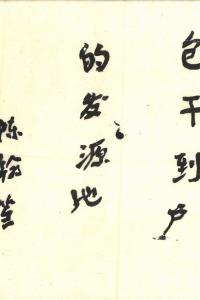 包干到户
的发源地
陈翰笙